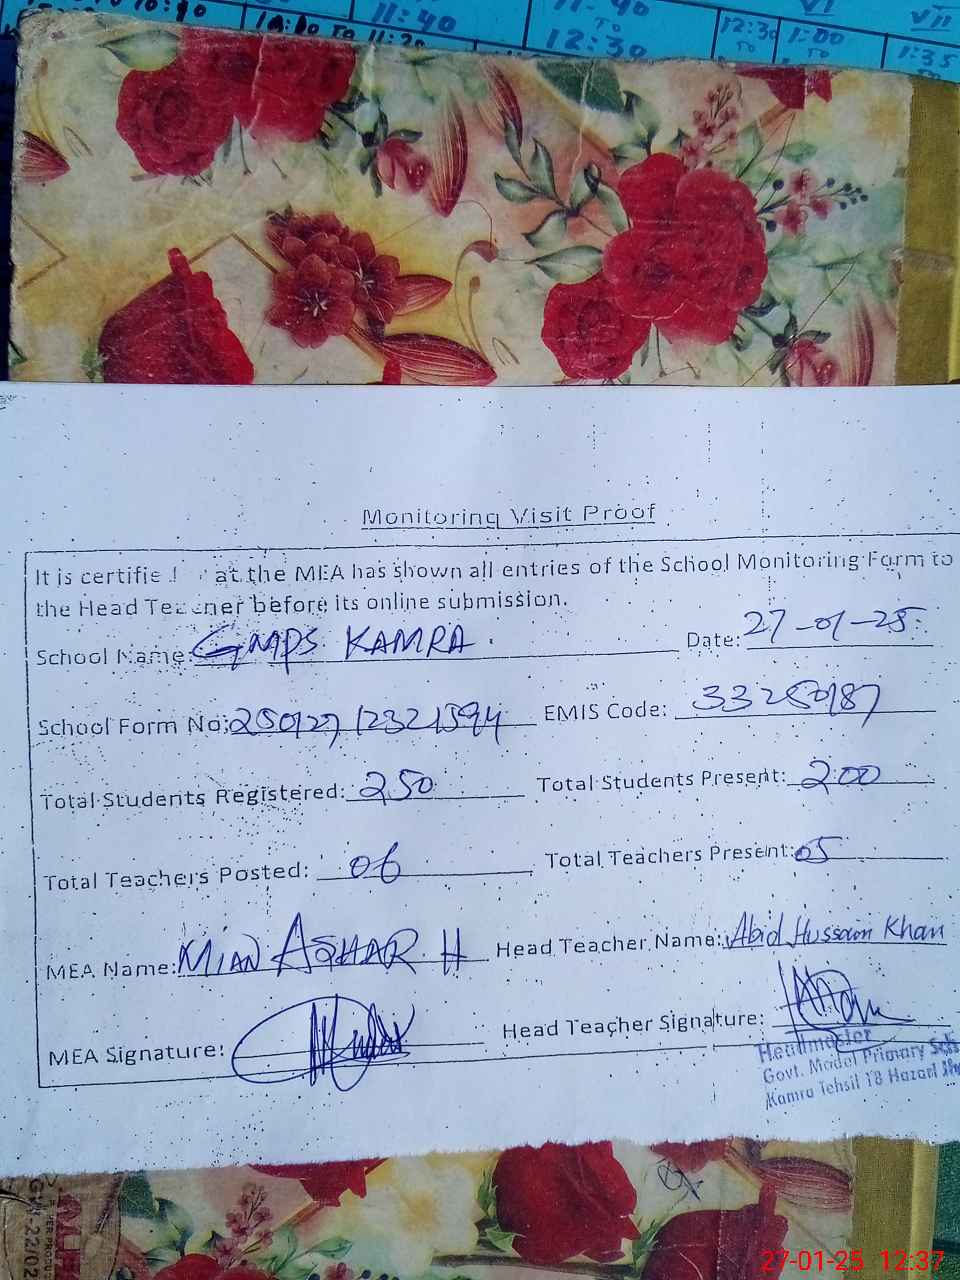 11:40
11-40
VI
VII
10:40 TO 11:20
TO
12:30
12:30
TO
1:00
TO
1:35
Monitoring Visit Proof
It is certified that the MEA has shown all entries of the School Monitoring Form to
the Head Teacher before its online submission.
School Name: GMPS KAMRA. Date: 27-01-25
School Form No: EMIS Code: 33250187
Total Students Registered: 250 Total Students Present: 200
Total Teachers Posted: 06 Total Teachers Present: 05
MEA Name: MIAN ASHAR H Head Teacher Name: Abid Hussain Khan
MEA Signature: Head Teacher Signature:
Headmaster
Govt. Model Primary Sch
Kamra Tehsil 18 Hazari
27-01-25 12:37